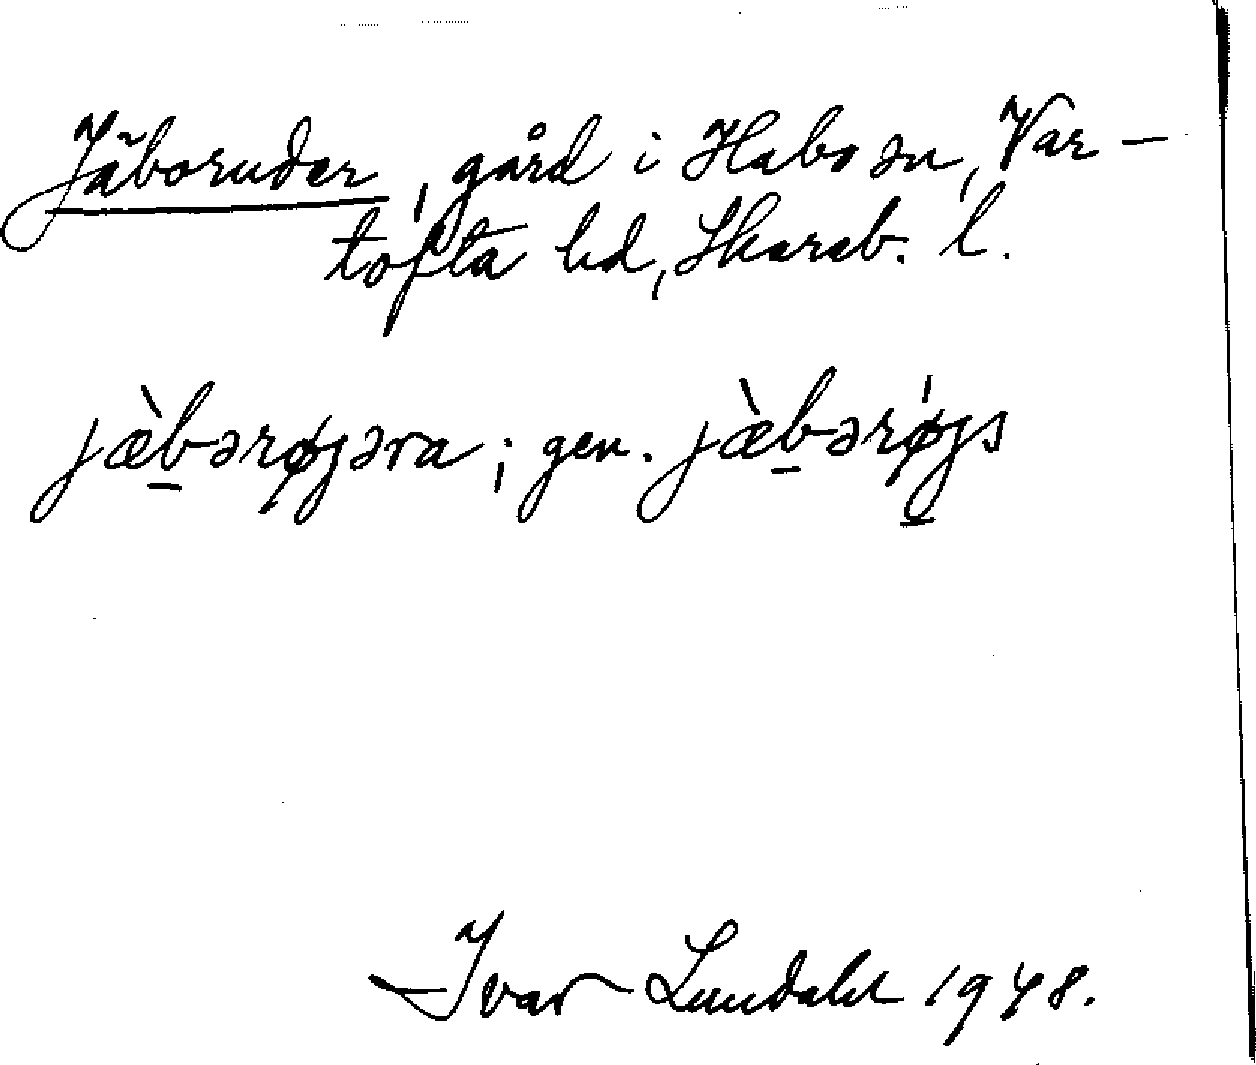 Jäboruder, gård i Habo sn, Var-
tofta hd, Skarab. l.
jæ̀bərøjəra ; gen. jæ̀bərø̍js
Ivar Lundahl 1948.